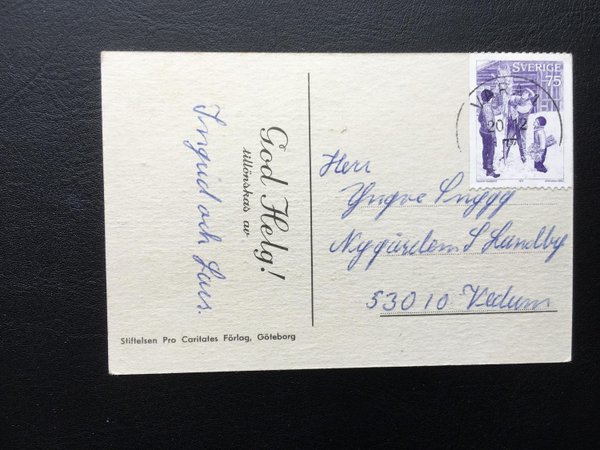 SVERIGE
75
VARA
20
God Helg!
tillönskas av
Ingrid och Lars.
Herr
Yngve Snygg
Nygården S Lundby
53010 Vedum
Stiftelsen Pro Caritates Förlag, Göteborg